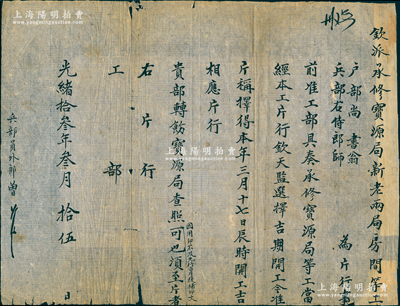 上海陽明拍賣
欽派承修寶源局新老兩局房間等
户部尚書翁
兵部右侍郎師
為片行
前准工部具奏承修寶源局等工當
經本工片行欽天監選擇吉期開工今准
片稱擇得本年三月十七日辰時開工吉
相應片行
貴部轉飭寶源局查照可也須至片者
右片行
工部
光緒拾叁年叁月拾伍日
兵部員外郎曾